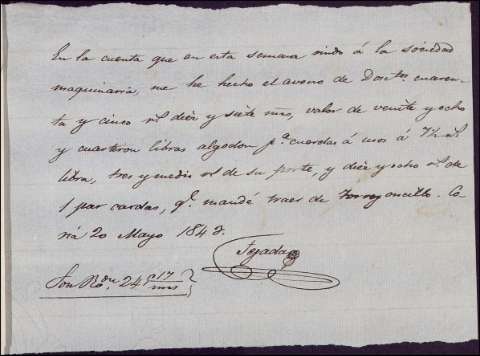 En la cuenta que en esta semana rindo á la sociedad
maquinaria, me he hecho el avono de Doctos. cuaren-
ta y cinco rs. diez y siete ms, valor de veinte y ocho
y cuarteron libras algodon pa. cuerdas á usos á 7½ rs.
libra, tres y medio rs de su porte, y diez y ocho rs de
1 par cardas, qe. mandé traer de Torrejoncillo. Co-
ria 20 Mayo 1843.
Tejada
Son Rs. vn. 245,,17 ms